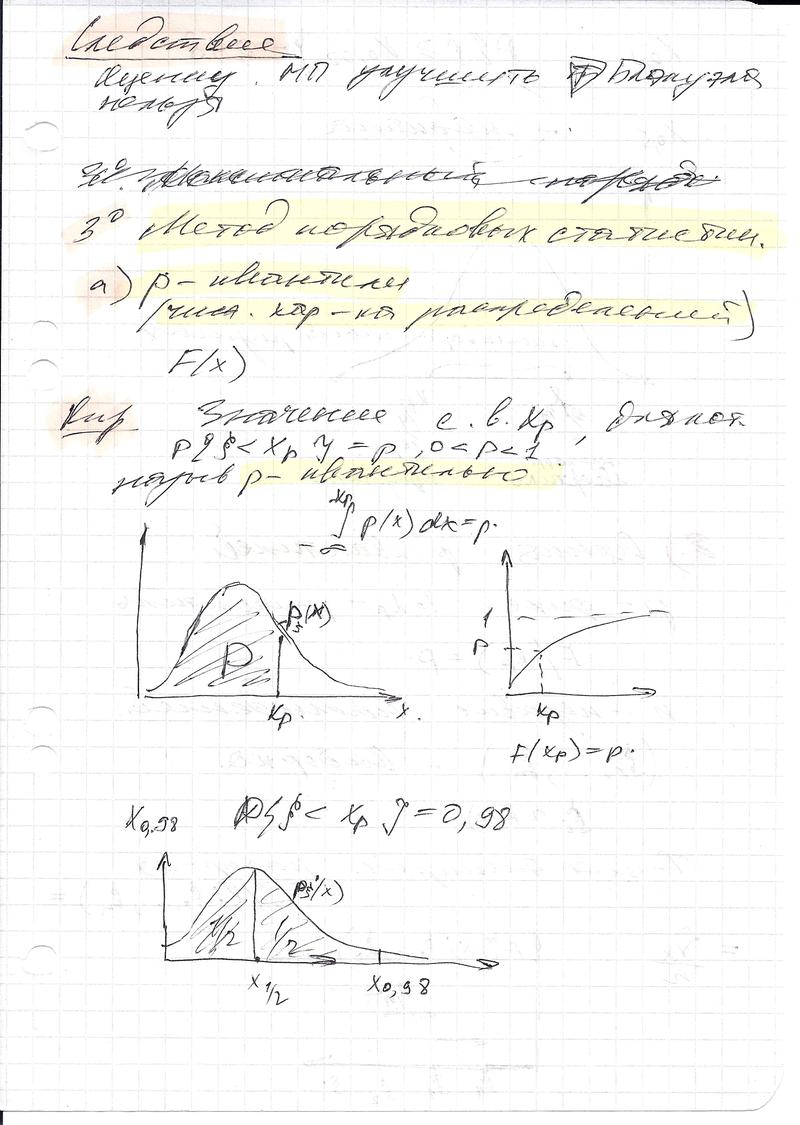 Следствие
Оценку МП улучшить Блэкуэлла
нельзя
3° Метод порядковых статистик.
а) p-квантили
(числ. хар-ка распределений)
F(x)
Опр. Значение с. в. x_p, для кот.
P{ξ < x_p} = p, 0 < p < 1
назыв p-квантилью
∫_{-∞}^{x_p} p(x) dx = p.
p_ξ(x)
P
x_p.
x.
1
p
x_p
F(x_p) = p.
x_{0,98} P{ξ < x_p} = 0,98
p_ξ(x)
1/2
1/2
x_{1/2}
x_{0,98}